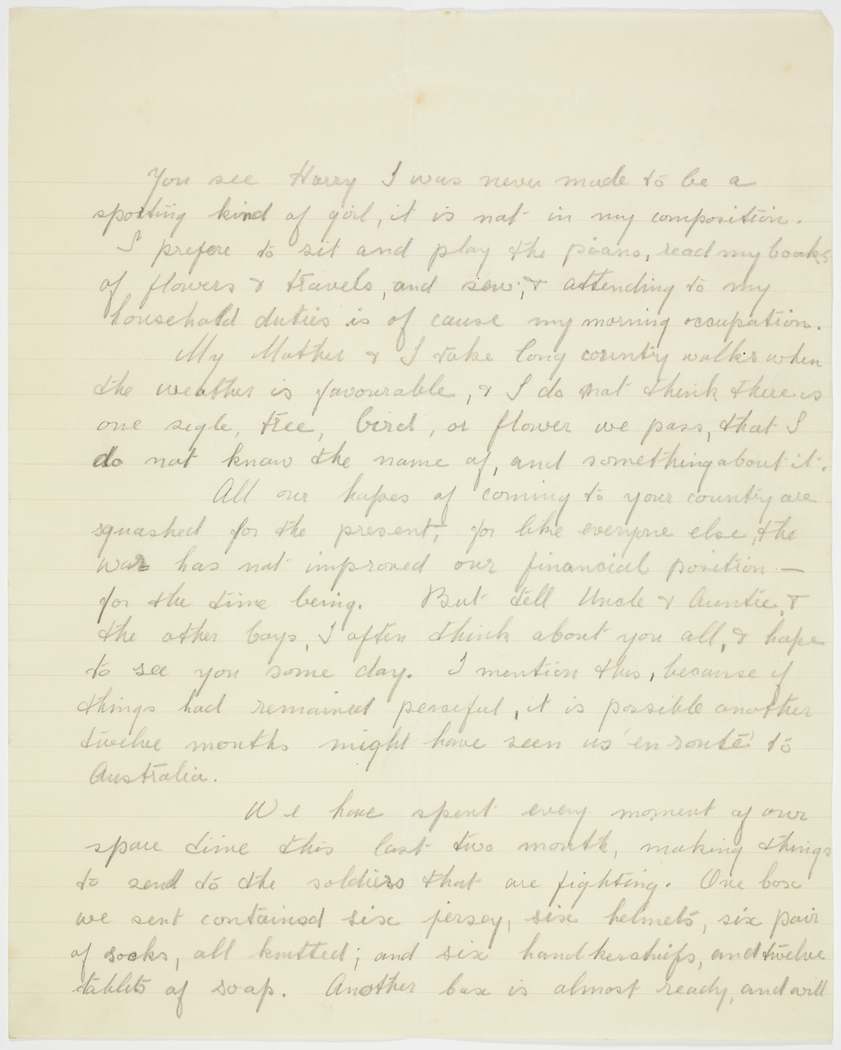 You see Harry I was never made to be a
sporting kind of girl, it is not in my composition.
I prefere to sit and play the piano, read my books
of flowers & travels, and sew, & attending to my
household duties is of cause my morning occupation.
My Mother & I take long country walks when
the weather is favourable, & I do not think there is
one sigle, tree, bird, or flower we pass, that I
do not know the name of, and something about it.
All our hopes of coming to your country are
squashed for the present, for like everyone else, the
war has not improved our financial position —
for the time being. But tell Uncle & Auntie, &
the other boys, I often think about you all, & hope
to see you some day. I mention this, because if
things had remained peaceful, it is possible another
twelve months might have seen us 'en route' to
Australia.
We have spent every moment of our
spare time this last two month, making things
to send to the soldiers that are fighting. One box
we sent contained six jersey, six helmets, six pair
of socks, all knitted; and six handkershifs, and twelve
tablets of soap. Another box is almost ready, and will